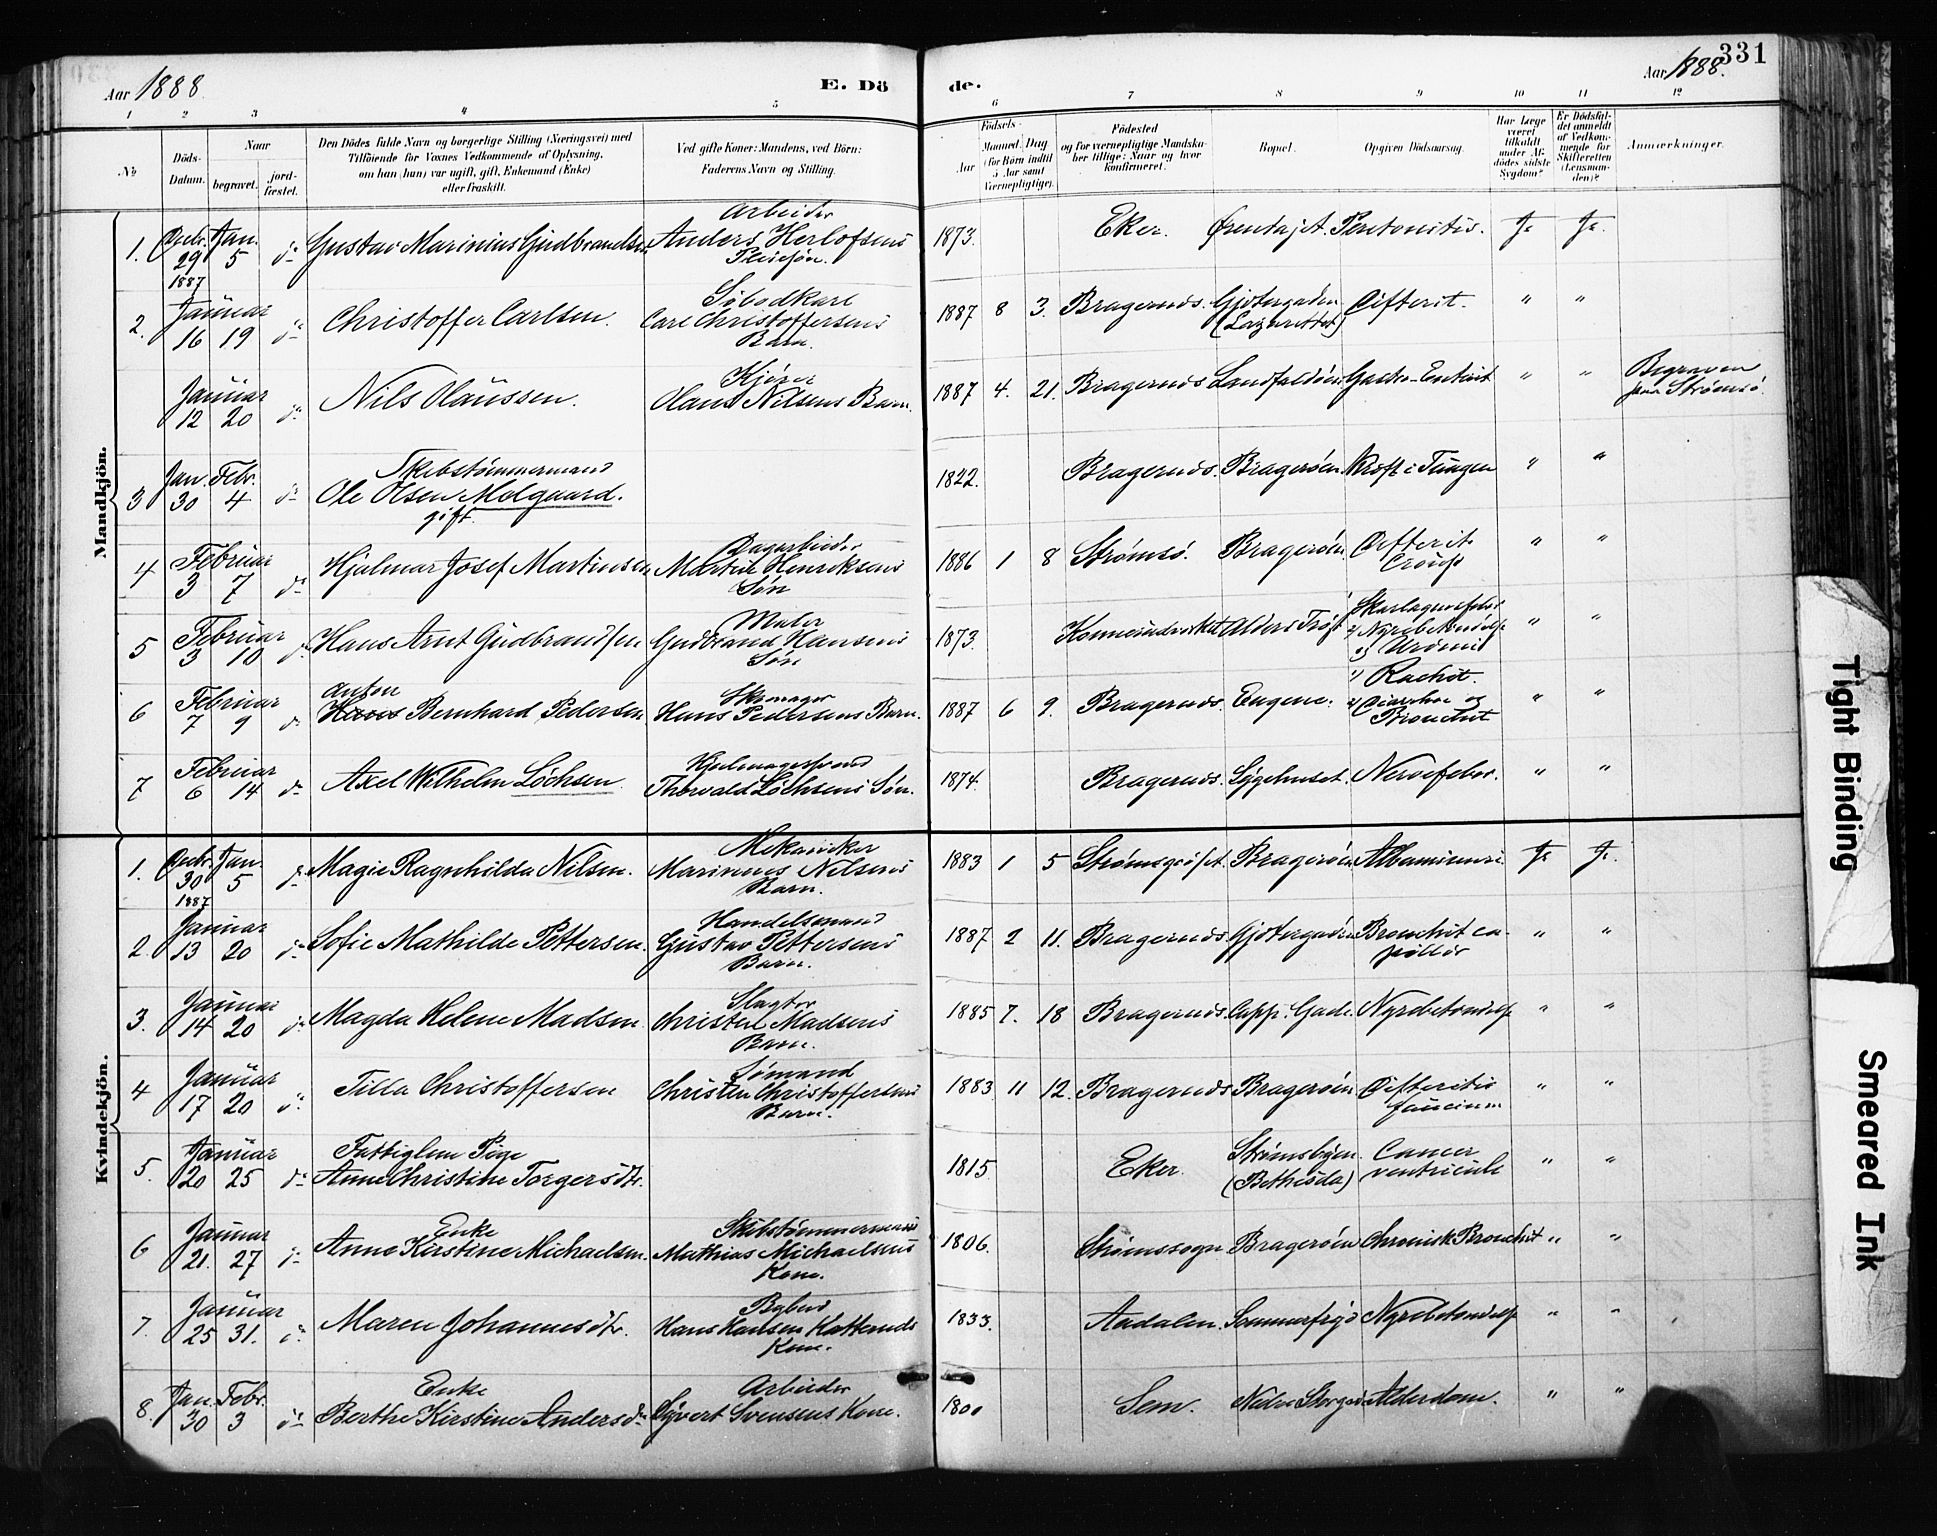 331
Aar 1888. E. Dö de. Aar 1888.
1 2 3 4 5 6 7 8 9 10 11 12
№
Döds-Datum.
Naar
begravet.
jord-fæstet.
Den Dödes fulde Navn og borgerlige Stilling (Næringsvei) med
Tilföiende for Voxnes Vedkommende af Oplysning,
om han (hun) var ugift, gift, Enkemand (Enke)
eller fraskilt.
Ved gifte Koner: Mandens, ved Börn:
Faderens Navn og Stilling.
Födsels-
Aar
Maaned. Dag
(for Börn indtil
5 Aar samt
Værnepligtige).
Födested
og for værnepligtige Mandska-
ber tillige: Naar og hvor
konfirmeret.
Bopæl.
Opgiven Dödsaarsag.
Har Læge
været
tilkaldt
under Af-
dödes sidste
Sygdom?
Er Dödsfal-
det anmeldt
af Vedkom-
mende for
Skifteretten
(Lensman-
den)?
Anmærkninger.
Mandkjön.
1. Decbr. 29 1887 Jan. 5 do Gustav Marinius Gudbrandsen Arbeider Anders Herlofsens Pleiesøn. 1873. Eker. Peritonitis. Ja Ja.
2. Januar 16 19 do Christoffer Carlsen. Carl Christoffersens Barn. 1887 8 3. Bragernes. Gjetergaden (Lazarettet) Difterit. " "
Januar 12 20 do Nils Olaussen. Kjører Olaus Nilsens Barn. 1887 4. 21. Bragernes Landfaldøen Gastro-Enterit " " Begraven paa Strømsø.
3 Jan. 30 Febr. 4 do Skibstømmermand Ole Olsen Molgaard. gift. 1822. Bragernes. Bragerøen. Kræft i Tungen " "
4 Februar 3 7 do Hjalmar Josef Martinsen Dagarbeider Martin Henriksens Søn 1886 1 8 Strømsø. Bragerøen Difterit. Croup " "
5 Februar 3 10 do Hans Arnt Gudbrandsen Maler Gudbrand Hansens Søn 1873. 1) Skarlagensfeber 2) Nyrebetændelse 3) Uræmi " "
6 Februar 7 9 do Anton Hans Bernhard Pedersen Skomager Hans Pedersens Barn. 1887 6 9. Bragernes. Eugene. 1) Rachit. 2) Diarrhoe og Bronchit " "
7 Februar 6 14 do Axel Wilhelm Löchsen. Hjulmagersvend Thorvald Löchsens Søn. 1874. Bragernes. Sygehuset. Nervefeber. " "
Kvindekjön.
1. Decbr. 30 1887 Jan. 5 do Magie Ragnhilda Nilsen. Mekaniker Marinius Nilsens Barn. 1883 1 5 Strømsgodset. Bragerøen Albuminuri Ja Ja.
2. Januar 13 20 do Sofie Mathilde Pettersen. Handelsmand Gustav Pettersens Barn. 1887 2 11. Bragernes Gjetergaden Bronchit capillær " "
3. Januar 14 20 do Magda Helene Madsen Slagter Christen Madsens Barn. 1885 7. 18 Bragernes. Capp. Gade. Nyrebetændelse " "
4 Januar 17 20 do Tilla Christoffersen Sømand Christen Christoffersens Barn. 1883 11 12. Bragernes Bragerøen Difteritis faucium " "
5. Januar 20 25 do Fattiglem Pige Anne Christine Torgersdtr. 1815. Eker. Strømsbyen. (Bethesda) Cancer ventriculi " "
6 Januar 21. 27 do Enke Anne Kirstine Michaelsen. Skibstømmermand Mathias Michaelsens Kone. 1806. Strømssogn Bragerøen Chronisk Bronchit " "
7. Januar 25 31. do Maren Johannesdtr. Bybud Hans Hansen Katterud Kone. 1833. Aadalen. Sommerfryd Nyrebetændelse " "
8. Jan. 30 Febr. 3 do Enke Berthe Kirstine Andersdtr Arbeider Syvert Svensens Kone. 1800 Sem. Nedre Storgade Alderdom. " "
Tight Binding
Smeared Ink